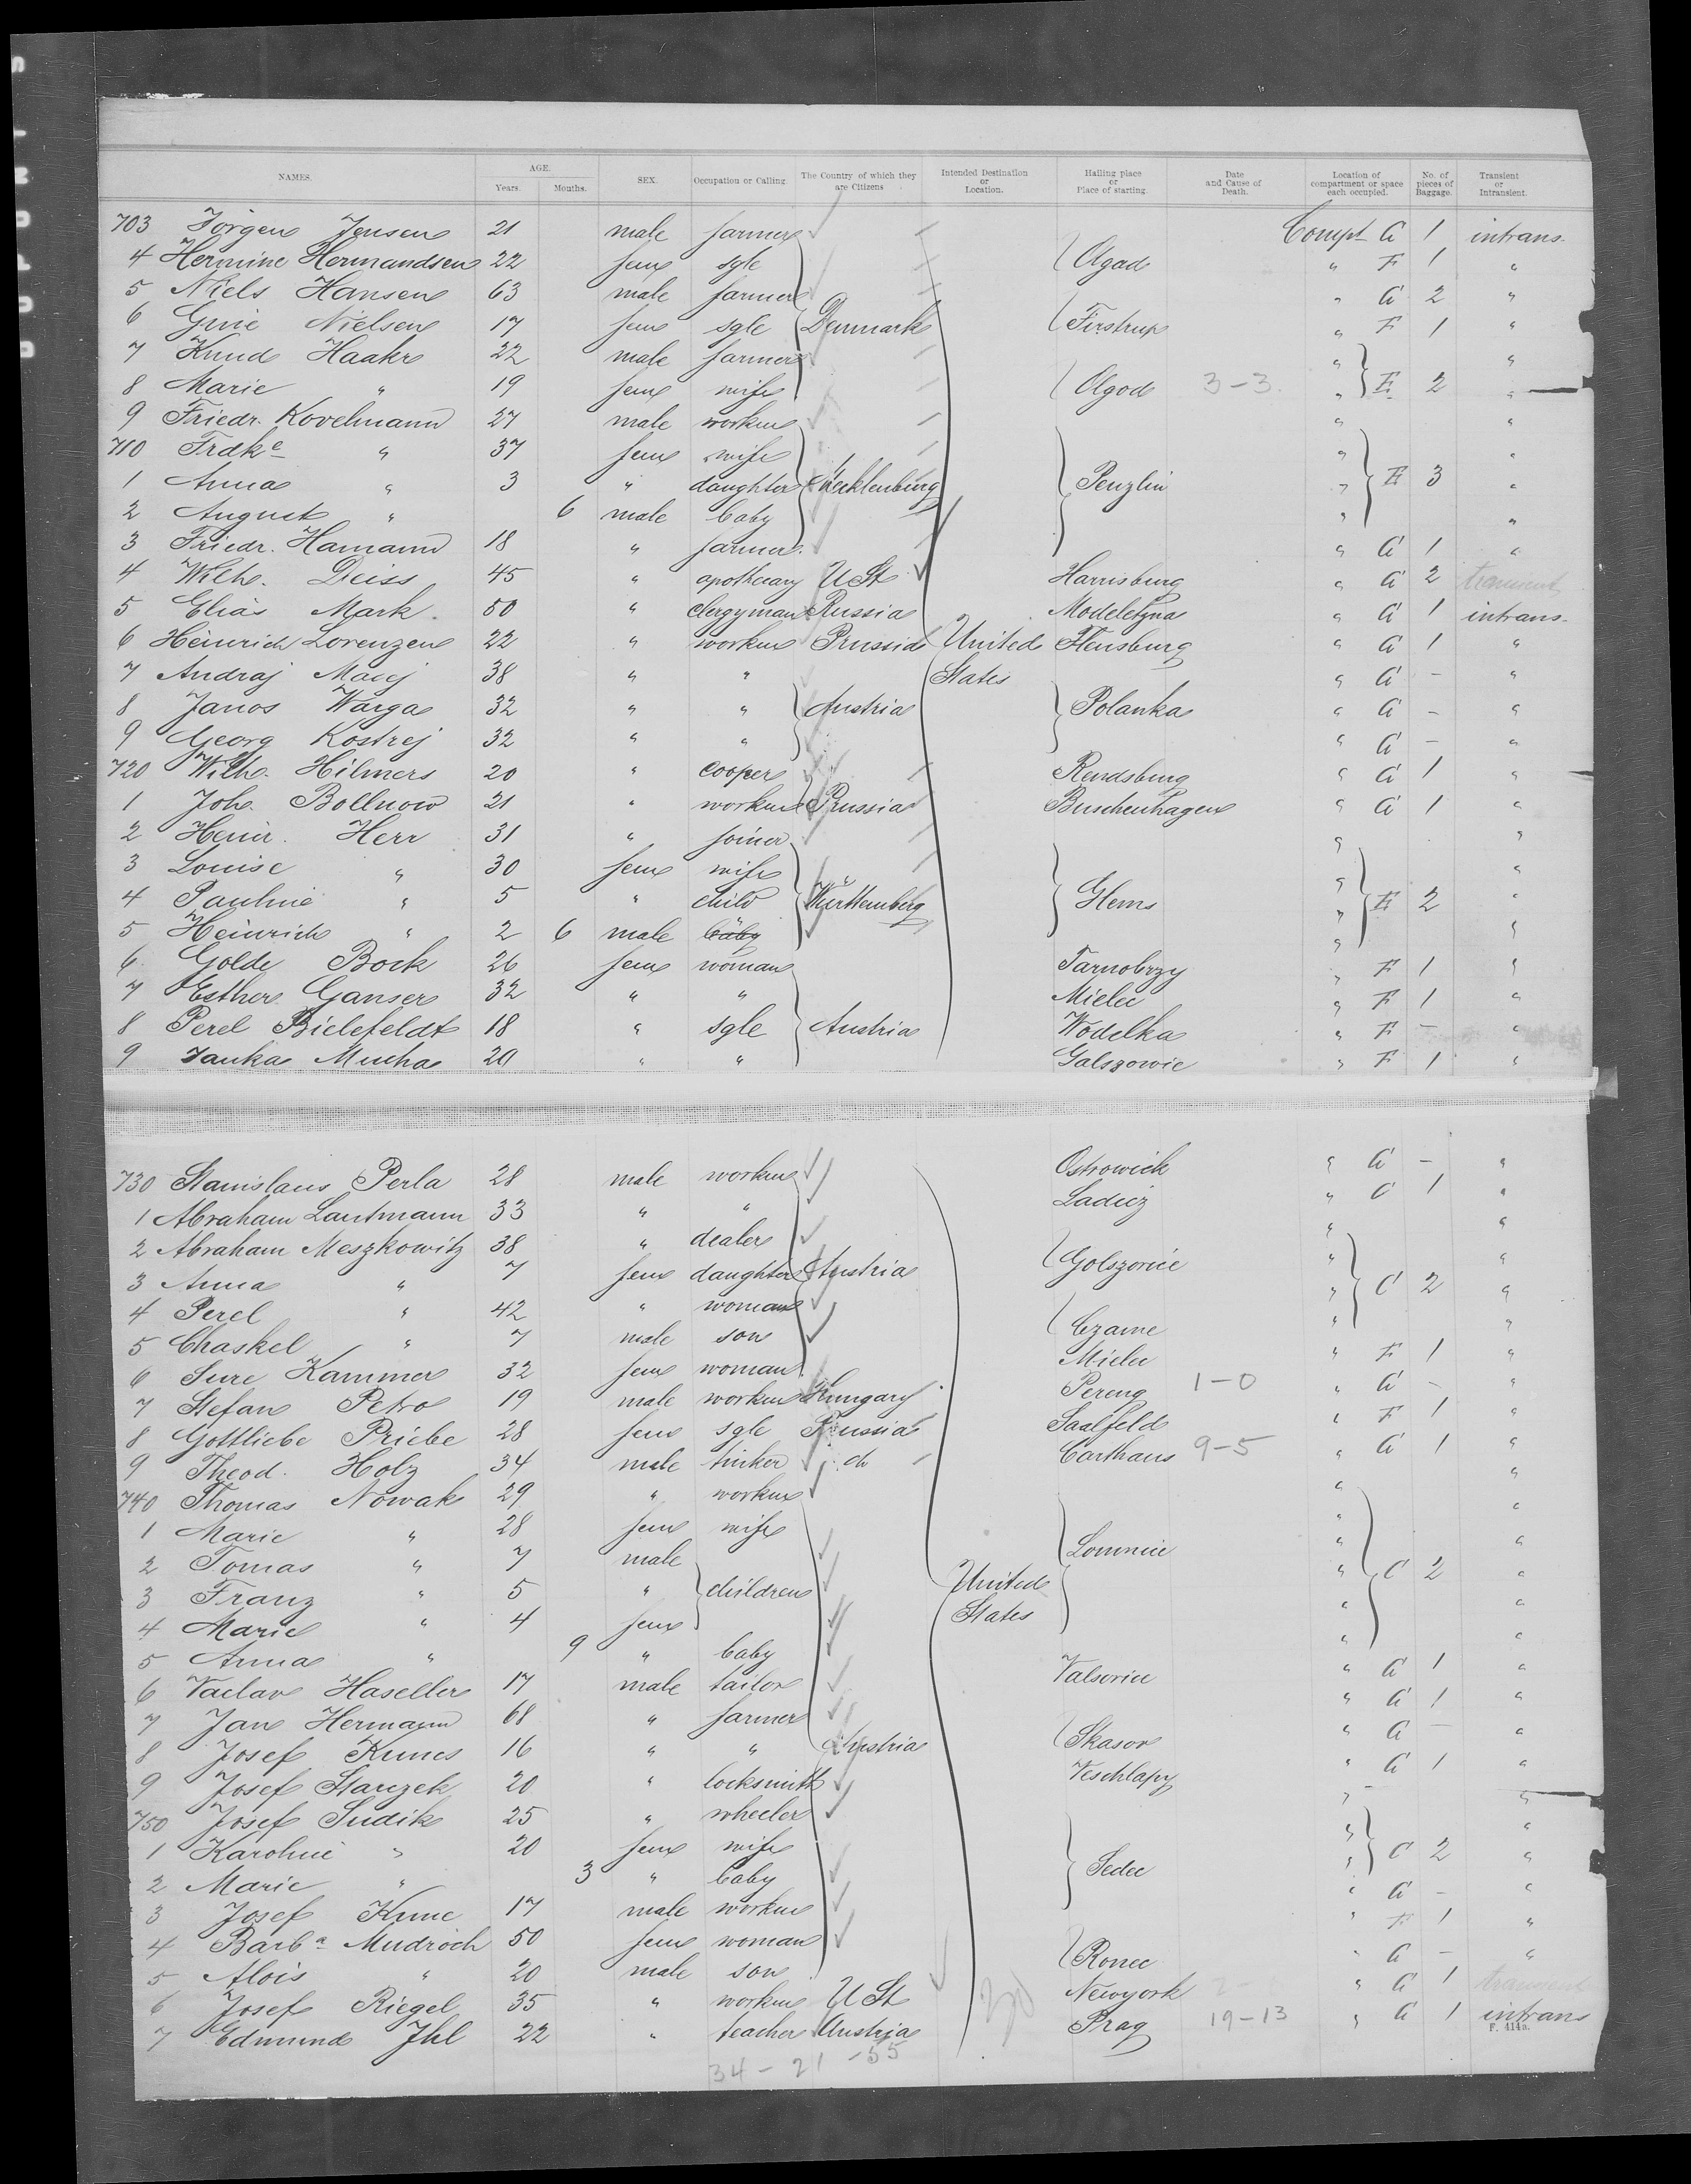 NAMES. AGE. Years. Months. SEX. Occupation or Calling The Country of which they are Citizens Intended Destination or Location. Halling place or Place of starting. Date and Cause of Death. Location of compartment or space each occupied. No. of pieces of Baggage. Transient or Intransient.
703 Jörgen Jensen 21 male farmer Compt G 1 intrans.
4 Hermine Hermandsen 22 fem sgle Olgad " F 1 "
5 Niels Hansen 63 male farmer " G 2 "
6 Nielsen 17 fem sgle Denmark Firstrup " F 1 "
7 Knud Haakr 22 male farmer " "
8 Marie " 19 fem wife Olgod 3-3 " E 2 "
9 Friedr. Kovelmann 27 male worker " "
710 Frdke " 37 fem wife " "
1 Anna " 3 " daughter Mecklenburg Penzlin " E 3 "
2 August " 6 male baby " "
3 Friedr. Hamann 18 " farmer " G 1 "
4 Wilh. Deiss 45 " apothecary U St Harrisburg " G 2 transient
5 Elias Mark 50 " clergyman Russia Modeletyna " G 1 intrans.
6 Heinrich Lorenzen 22 " worker Prussia United Flensburg " G 1 "
7 Andraj Macej 38 " " States " G - "
8 Janos Warga 32 " " Austria Polanka " G - "
9 Georg Kostrej 32 " " " G - "
720 Wilh. Hilmers 20 " cooper Rendsburg " G 1 "
1 Joh. Bollnow 21 " worker Prussia Buschenhagen " G 1 "
2 Heinr. Herr 31 " joiner " "
3 Louise " 30 fem wife " "
4 Pauline " 5 " child Württemberg Glems " E 2 "
5 Heinrich " 2 6 male baby " "
6 Golde Bock 26 fem woman Tarnobrzy " F 1 "
7 Esther Ganser 32 " " Mielec " F 1 "
8 Perel Bielefeldt 18 " sgle Austria Wodelka " F - "
9 Janka Mucha 20 " " Galszowie " F 1 "
730 Stanislaus Perla 28 male worker Ostrowick " G - "
1 Abraham Lautmann 33 " " Ladicz " C 1 "
2 Abraham Meszkowitz 38 " dealer " "
3 Anna " 7 fem daughter Austria Golszovice " "
4 Perel " 42 " woman " C 2 "
5 Chaskel " 7 male son Czarne " "
6 Sure Kammer 32 fem woman Mielec " F 1 "
7 Stefan Petro 19 male worker Hungary Pereng 1-0 " G - "
8 Gottliebe Priebe 28 fem sgle Prussia Saalfeld " F 1 "
9 Theod. Holz 34 male tinker do Carthaus 9-5 " G 1 "
740 Thomas Nowak 29 " worker " "
1 Marie " 28 fem wife " "
2 Tomas " 7 male Lomnice " "
3 Franz " 5 " children United " C 2 "
4 Marie " 4 fem States " "
5 Anna " 9 " baby " "
6 Vaclav Haseller 17 male tailor Valsovice " G 1 "
7 Jan Hermann 68 " farmer " G 1 "
8 Josef Kunes 16 " " Austria Skasov " G - "
9 Josef Stanzek 20 " locksmith Veschlapy " G 1 "
750 Josef Sudik 25 " wheeler " - "
1 Karoline " 20 fem wife " "
2 Marie " 3 " baby Sedec " C 2 "
3 Josef Kune 17 male worker " G - "
4 Barba Mudroch 50 fem woman " F 1 "
5 Alois " 20 male son Ronec " G - "
6 Josef Riegel 35 " worker U St Newyork " G 1 transient
7 Edmund Ihl 22 " teacher Austria Prag 19-13 " G 1 intrans
F. 414a.
34 - 21 - 55